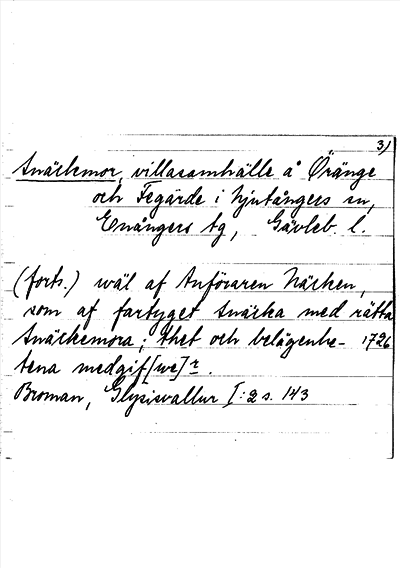 3)
Snäckmor, villasamhälle å Öränge
och Tegärde i Njutångers sn,
Enångers tg, Gävleb. l.
(forts.) wäl af Anföraren Näcken,
som af fartyget Snäcka med rätta
Snäckemora; thet och belägenhe- 1726
tena medgif[we]r.
Broman, Glysisvallur I:2 s. 143